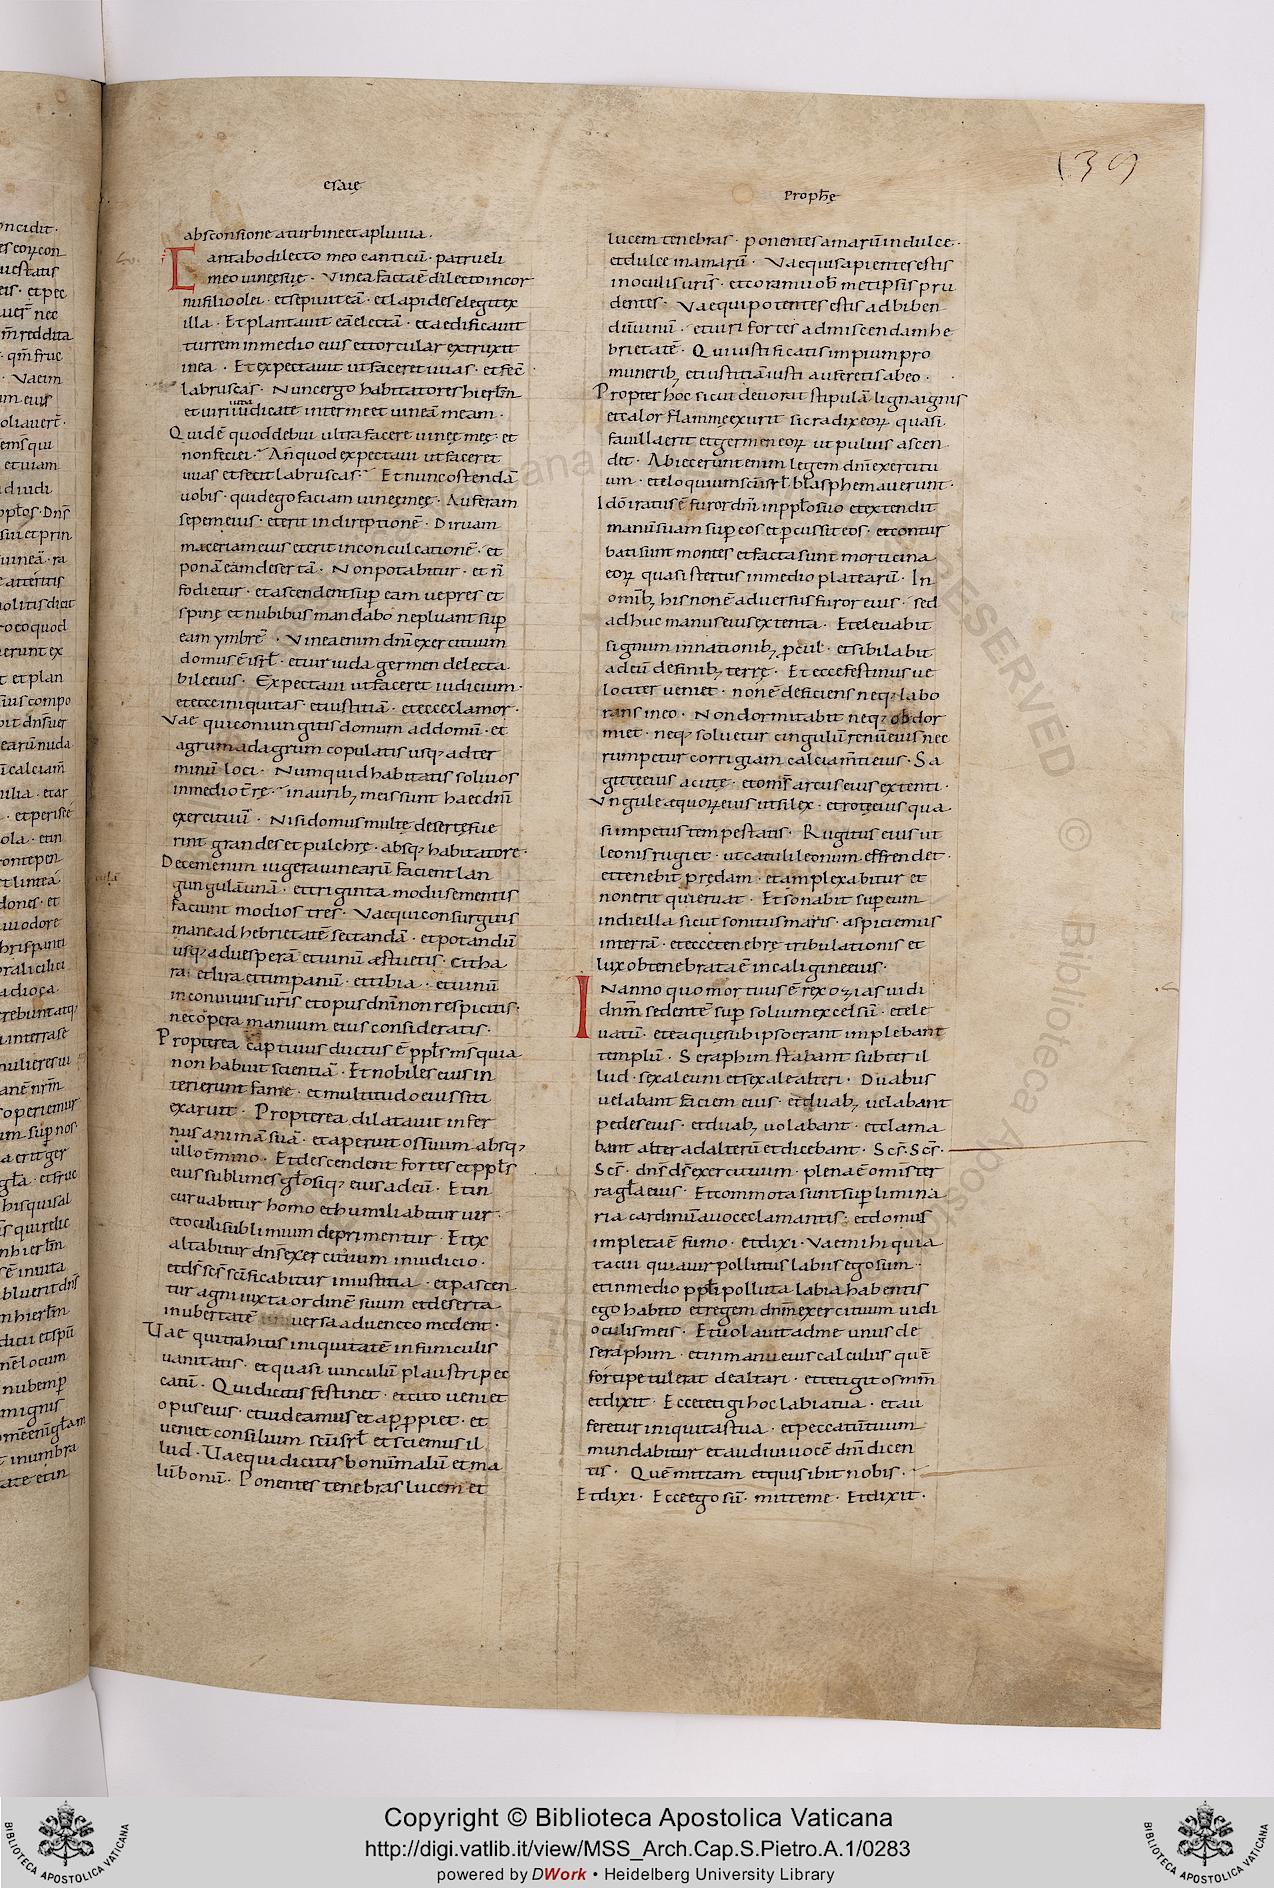 (39)
esaie
prophę
absconsione a turbine et a pluvia.
Cantabo dilecto meo canticū. patrueli
meo vineę suę. Vinea facta ē dilecto in cor
nu filio olei. et sepivit eā. et lapides elegit ex
illa. Et plantavit eā electā. et aedificavit
turrem in medio eius et torcular extruxit
in ea. Et expectavit ut faceret uvas. et fec̄.
labruscas. Nunc ergo habitatores hierłm
et viri iuda iudicate inter me et vineā meam.
Quid ē quod debui ultra facere vineę meę. et
non feci ei. An̄ quod expectavi ut faceret
uvas et fecit labruscas. Et nunc ostendā
vobis. quid ego faciam vineę meę. Auferam
sepem eius. et erit in direptionē. Diruam
maceriam eius et erit in conculcationē. et
ponā eam desertā. Non potabitur. et n̄
fodietur. et ascendent sup̄ eam vepres et
spinę et nubibus mandabo ne pluant sup̄
eam ymbrē. Vinea enim dn̄i exercituum
domus ē isrł. et vir iuda germen delecta
bile eius. Expectavi ut faceret iudicium.
et ecce iniquitas. et iustitiā. et ecce clamor.
Vae qui coniungitis domum ad domū. et
agrum ad agrum copulatis usq; ad ter
minū loci. Numquid habitatis soli vos
in medio t̄rę. in aurib; meis sunt haec dn̄i
exercituū. Nisi domus multę desertę fue
rint grandes et pulchrę. absq; habitatore.
Decem enim iugera vinearū facient lan
gungulā unā. et triginta modii sementis
faciunt modios tres. Vae qui consurgitis
mane ad hebrietatē sectandā. et potandū
usq; ad vesperā et vinū aestuetis. Citha
ra. et lira et timpanū. et tibia. et vinū
in conviviis vr̄is et opus dn̄i non respicitis.
nec opera manuum eius consideratis.
Propterea captivus ductus ē pp̄ls ms̄ quia
non habuit scientiā. Et nobiles eius in
terierunt fame. et multitudo eius siti
exaruit. Propterea dilatavit infer
nus animā suā. et aperuit os suum absq;
ullo t̄mino. Et descendent fortes et pp̄ls
eius sublimes gl̄osiq; eius ad eū. Et in
curvabitur homo et humiliabitur vir.
et oculi sublimium deprimentur. Et ex
altabitur dn̄s exercituum in iudicio.
et ds̄ scs̄ scīficabitur in iustitia. et pascen
tur agni iuxta ordinē suum et deserta
in ubertatē versa advenę comedent.
Vae qui trahitis iniquitatē in funiculis
vanitatis. et quasi vinculū plaustri pec
catū. Qui dicitis festinet. et cito veniet
opus eius. et videamus et app̄piet. et
veniet consilium scī isrł et sciemus il
lud. Vae qui dicitis bonū malū et ma
lū bonū. Ponentes tenebras lucem et
lucem tenebras. ponentes amarū in dulce.
et dulce in amarū. Vae qui sapientes estis
in oculis vr̄is. et coram vob̄ metipsis pru
dentes. Vae qui potentes estis ad biben
dū vinū. et viri fortes ad miscendam he
brietatē. Qui iustificatis impium pro
munerib; et iustitiā iusti auferetis ab eo.
Propter hoc sicut devorat stipulā lignaignis
et calor flamme exurit sic radix eoꝝ quasi
favilla erit et germen eoꝝ ut pulvis ascen
det. Abiecerunt enim legem dn̄i exercitu
um. et eloquium scī isrł blasphemaverunt.
Idō iratus ē furor dn̄i in pp̄lo suo et extendit
manū suam sup̄ eos et p̄cussit eos. et contur
bati sunt montes et facta sunt morticina
eoꝝ quasi stercus in medio platearū. In
omīb; his non ē adversus furor eius. sed
adhuc manus eius extenta. Et elevabit
signum in nationib; p̄cul. et sibilabit
ad eū de finib; terrę. Et ecce festinus ve
lociter veniet. non ē deficiens neq; labo
rans in eo. Non dormitabit neq; ob dor
miet. neq; solvetur cingulū renū eius nec
rumpetur corrigiam calciam̄ti eius. Sa
gittę eius acutę. et om̄s arcus eius extenti.
Vngule aequoꝝ eius ut silex. et rotę eius qua
si impetus tempestatis. Rugitus eius ut
leonis rugiet. ut catuli leonum effrendet.
et tenebit prędam. et amplexabitur et
non erit qui eruat. Et sonabit sup̄ eum
in die illa sicut sonitus maris. aspiciemus
in terrā. et ecce tenebrę tribulationis et
lux obtenebrata ē in caligine eius.
IN anno quo mortuus ē rex ozias vidi
dn̄m sedentē sup̄ solium excelsū. et ele
vatū. et ea quę sub ipso erant implebant
templū. Seraphim stabant subter il
lud. sex ale uni et sex ale alteri. Duabus
velabant faciem eius. et duab; velabant
pedes eius. et duab; volabant. et clama
bant alter ad alterū et dicebant. Scs̄. Scs̄.
Scs̄. dn̄s ds̄ exercituum. plena ē omīs ter
ra gl̄a eius. Et commota sunt sup̄ limina
ria cardinū a voce clamantis. et domus
impleta ē fumo. et dixi. Vae mihi quia
tacui quia vir pollutus labiis ego sum.
et in medio pp̄li polluta labia habentis
ego habito et regem dn̄m exercituum vidi
oculis meis. Et volavit ad me unus de
seraphim. et in manu eius calculus quē
forcipe tulerat de altari. et tetigit os mm̄
et dixit. Ecce tetigi hoc labia tua. et au
feretur iniquitas tua. et peccatū tuum
mundabitur et audivi vocē dn̄i dicen
tis. Quē mittam et quis ibit nobis.
Et dixi. Ecce ego sū. mitte me. Et dixit.
Copyright © Biblioteca Apostolica Vaticana
http://digi.vatlib.it/view/MSS_Arch.Cap.S.Pietro.A.1/0283
powered by DWork • Heidelberg University Library